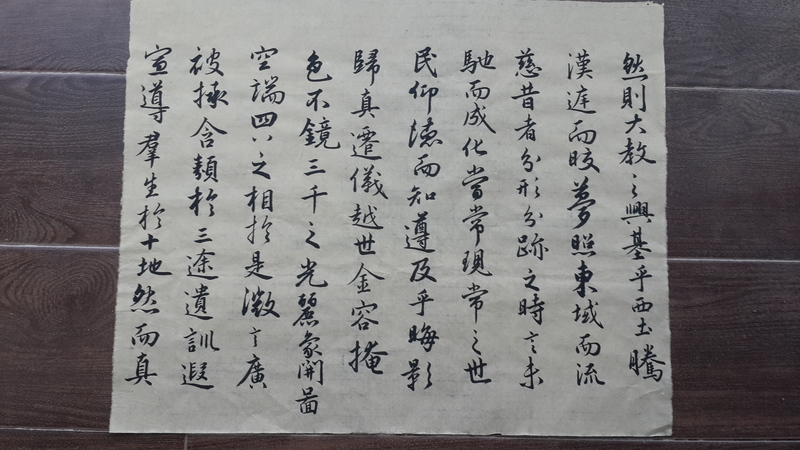 然則大教之興基乎西土騰
漢庭而皎夢照東域而流
慈昔者分形分跡之時言未
馳而成化當常現常之世
民仰德而知遵及乎晦影
歸真遷儀越世金容掩
色不鏡三千之光麗象開圖
空端四八之相於是微言廣
被拯含類於三途遺訓遐
宣導羣生於十地然而真